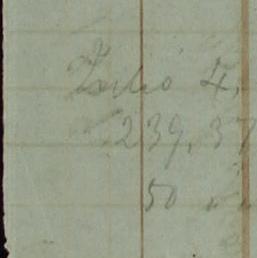 Julio 4,
239,37
50 " "